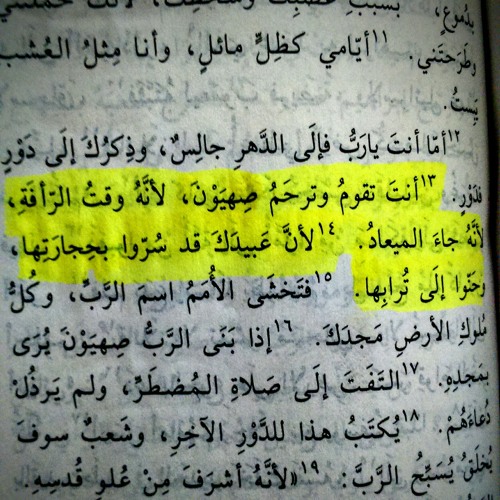 بدُموعٍ،
وطَرَحتَني. ١١أيّامي كظِلٍّ مائلٍ، وأنا مِثلُ العُشبِ
يَبِستُ.
١٢أمّا أنتَ يارَبُّ فإلَى الدَّهرِ جالِسٌ، وذِكرُكَ إلَى دَوْرٍ
فدَوْرٍ. ١٣أنتَ تقومُ وترحَمُ صِهيَوْنَ، لأنَّهُ وقتُ الرّأفَةِ،
لأنَّهُ جاءَ الميعادُ. ١٤لأنَّ عَبيدَكَ قد سُرّوا بحِجارَتِها،
وحَنّوا إلَى تُرابِها. ١٥فتخشَى الأُمَمُ اسمَ الرَّبِّ، وكُلُّ
مُلوكِ الأرضِ مَجدَكَ. ١٦إذا بَنَى الرَّبُّ صِهيَوْنَ يُرَى
بمَجدِهِ. ١٧التَفَتَ إلَى صَلاةِ المُضطَرِّ، ولم يَرذُلْ
دُعاءَهُمْ. ١٨يُكتَبُ هذا للدَّوْرِ الآخِرِ، وشَعبٌ سوفَ
يُخلَقُ يُسَبِّحُ الرَّبَّ: ١٩«لأنَّهُ أشرَفَ مِنْ عُلوِ قُدسِهِ.